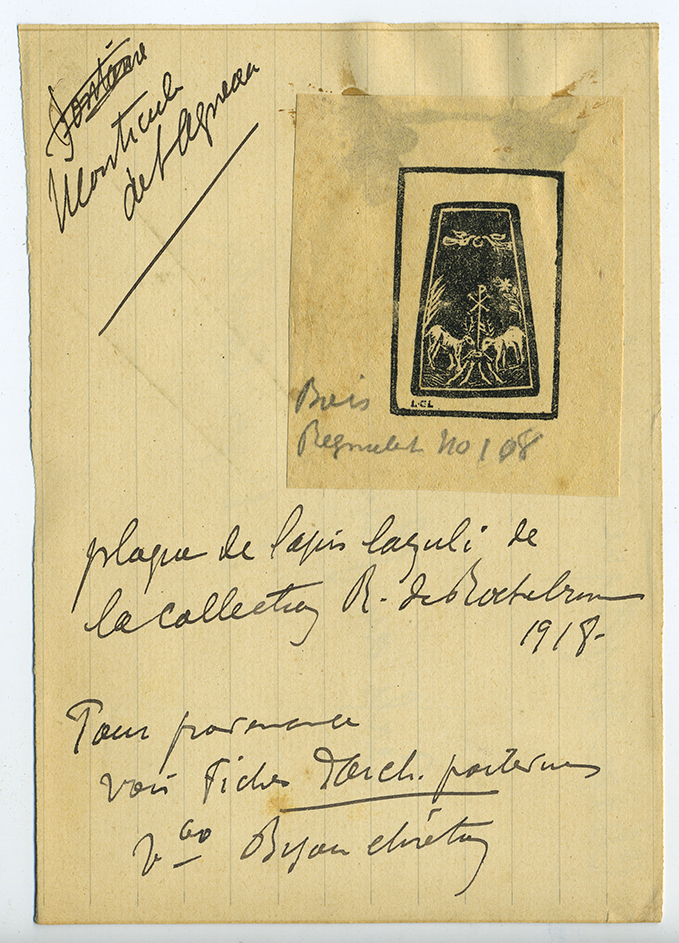 Fontaine
Monticule
de l'Agneau
L-CL
Bois
Regnault no 108
plaque de lapis lazuli de
la collection R. de Rochebrune
1918-
Pour provenance
voir Fiches d'Arch.
v<sup>bo</sup> Bijou chrétien